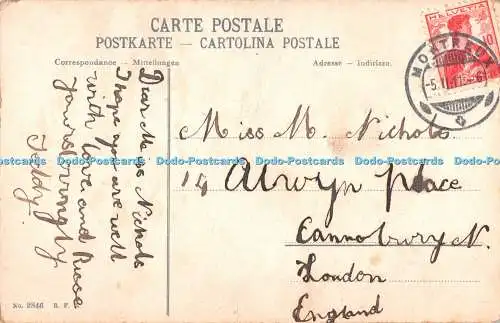 CARTE POSTALE
POSTKARTE - CARTOLINA POSTALE
Correspondance - Mitteilungen
Adresse - Indirizzo.
HELVETIA
10
MONTREUX
Dear Miss Nichols
I hope you are well
with love and
yours lovingly
Teddy.
Miss M. Nichols
14 Alwyn place
Cannobury N.
London
England
Dodo-Postcards Dodo-Postcards Dodo-Postcards Dodo-Postcards Dodo-Postcards Dodo-Postcards
No. 2846 B. F.